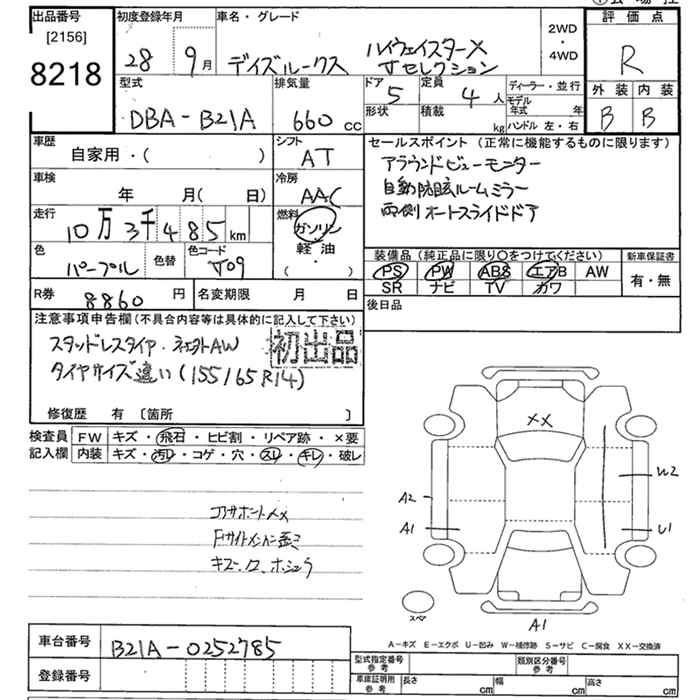 出品番号
[2156]
8218
初度登録年月
28 9月
車名・グレード
デイズルークス ハイウェイスターX
Vセレクション
2WD
・
4WD
評価点
R
外装 内装
B B
型式
DBA-B21A
排気量
660 cc
ドア
5
形状
定員
4 人
積載
kg
ディーラー・並行
モデル年式 年
ハンドル 左・右
車歴
自家用・( )
シフト
AT
車検
年 月( 日)
冷房
AAC
走行
10万3千485 km
燃料
ガソリン
軽・油
( )
色
パープル
色替
色コード
V09
R券
8860 円
名変期限 月 日
セールスポイント(正常に機能するものに限ります)
アラウンドビューモニター
自動防眩ルームミラー
両側オートスライドドア
装備品(純正品に限り〇をつけてください)
PS PW ABS エアB AW
SR ナビ TV カワ
新車保証書
有・無
後日品
注意事項申告欄(不具合内容等は具体的に記入して下さい)
スタッドレスタイヤ・社外AW
タイヤサイズ違い(155/65R14)
初出品
修復歴 有 〔箇所 〕
検査員 FW キズ・飛石・ヒビ割・リペア跡・×要
記入欄 内装 キズ・汚レ・コゲ・穴・スレ・キレ・破レ
コアサポートXX
XX
A2
A1
W2
U1
スペア
A1
A-キズ E-エクボ U-凹み W-補修跡 S-サビ C-腐食 XX-交換済
車台番号
B21A-0252785
登録番号
型式指定番号
参考
類別区分番号
参考
車庫証明用
参考
長さ cm
幅 cm
高さ cm